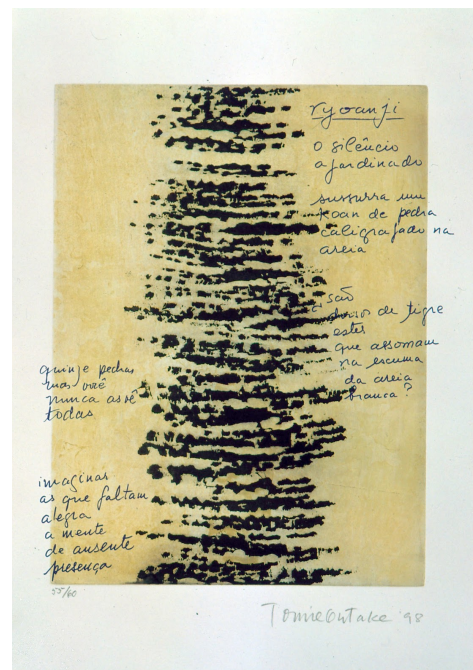 ryoanji
o silêncio
ajardinado
sussurra um
koan de pedra
caligrafado na
areia
são
dorsos de tigre
estes
que assomam
na escuma
da areia
branca?
quinze pedras
mas você
nunca as vê
todas
imaginar
as que faltam
alegra
a mente
de ausente
presença
55/60
Tomie Ohtake '98